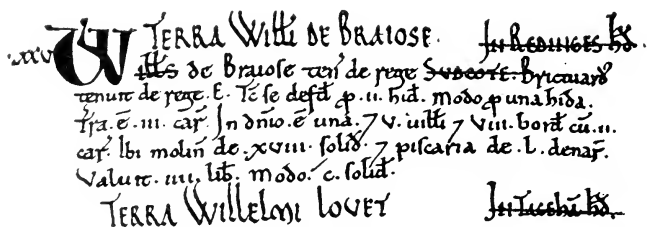 .XXV. TERRA Willi DE BRAIOSE. IN REDINGES HD̄.
Wills de Braiose ten̄ de rege SUDCOTE. Brictuard
tenuit de rege .E. Tc̄ se defd̄ p̱ .II. hid. modo p̱ una hida.
Tr̄a .ē .III. car̄. In dn̄io .ē una. ⁊ V. uilli ⁊ VIII. bord̄ cū .II.
car̄. Ibi molin̄ de .XVIII. solid̄. ⁊ piscaria de .L. denar̄.
Valuit .IIII. lib̄. modo .C. solid̄.
TERRA WILLELMI LOVET IN TACEHĀ HD̄.